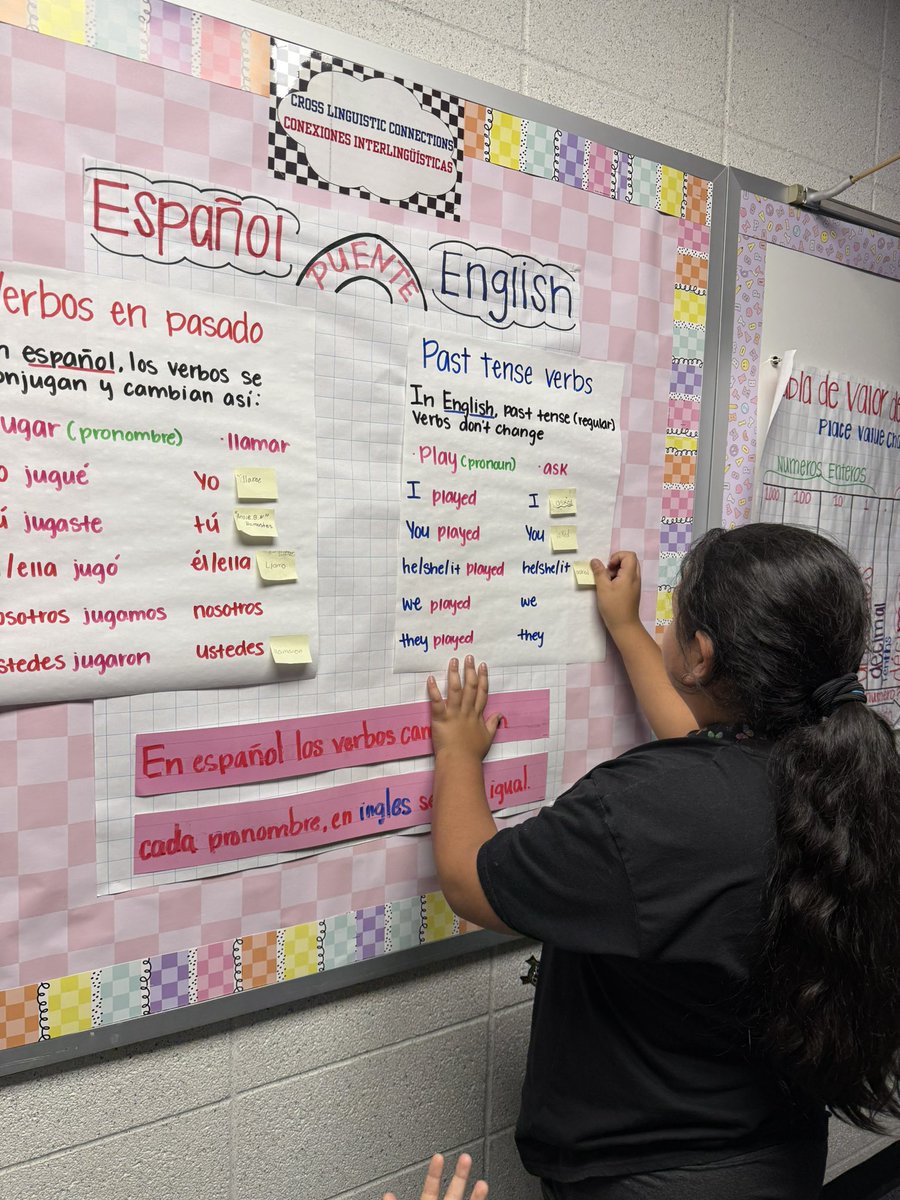 CROSS LINGUISTIC CONNECTIONS
CONEXIONES INTERLINGÜÍSTICAS
Español
PUENTE
English
Verbos en pasado
español, los verbos se
conjugan y cambian así:
jugar (pronombre)
· llamar
jugué
Yo
jugaste
tú
él/ella jugó
él/ella
Llamo
nosotros jugamos
nosotros
ustedes jugaron
ustedes
llamaron
Past tense verbs
In English, past tense (regular)
verbs don't change
· Play (pronoun)
· ask
I played
I
asked
You played
You
asked
he/she/it played
he/she/it
asked
we played
we
they played
they
En español los verbos
cada pronombre, en ingles
igual.
Tabla de Valor
Place Value
Números Enteros
1,000 100 10 1
decimal